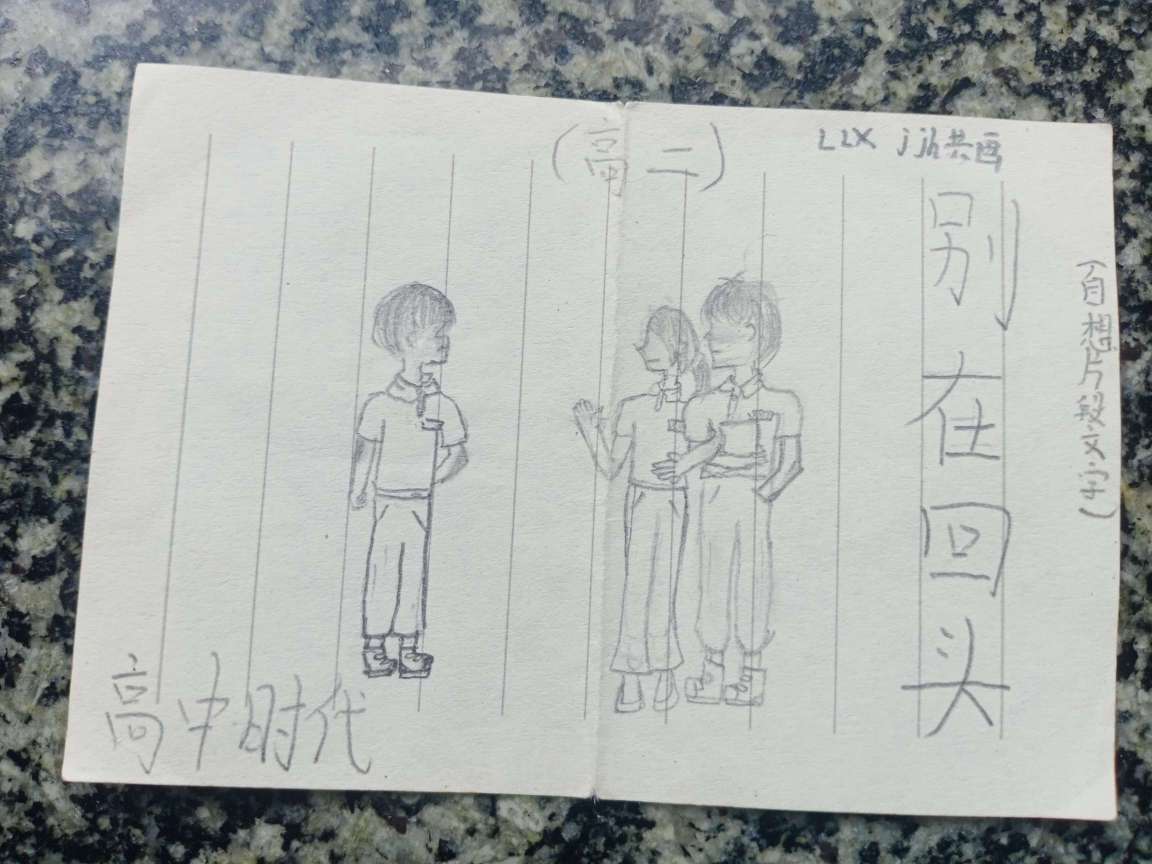 (高二)
LLX jjh共画
别在回头
(自想片段文字)
高中时代